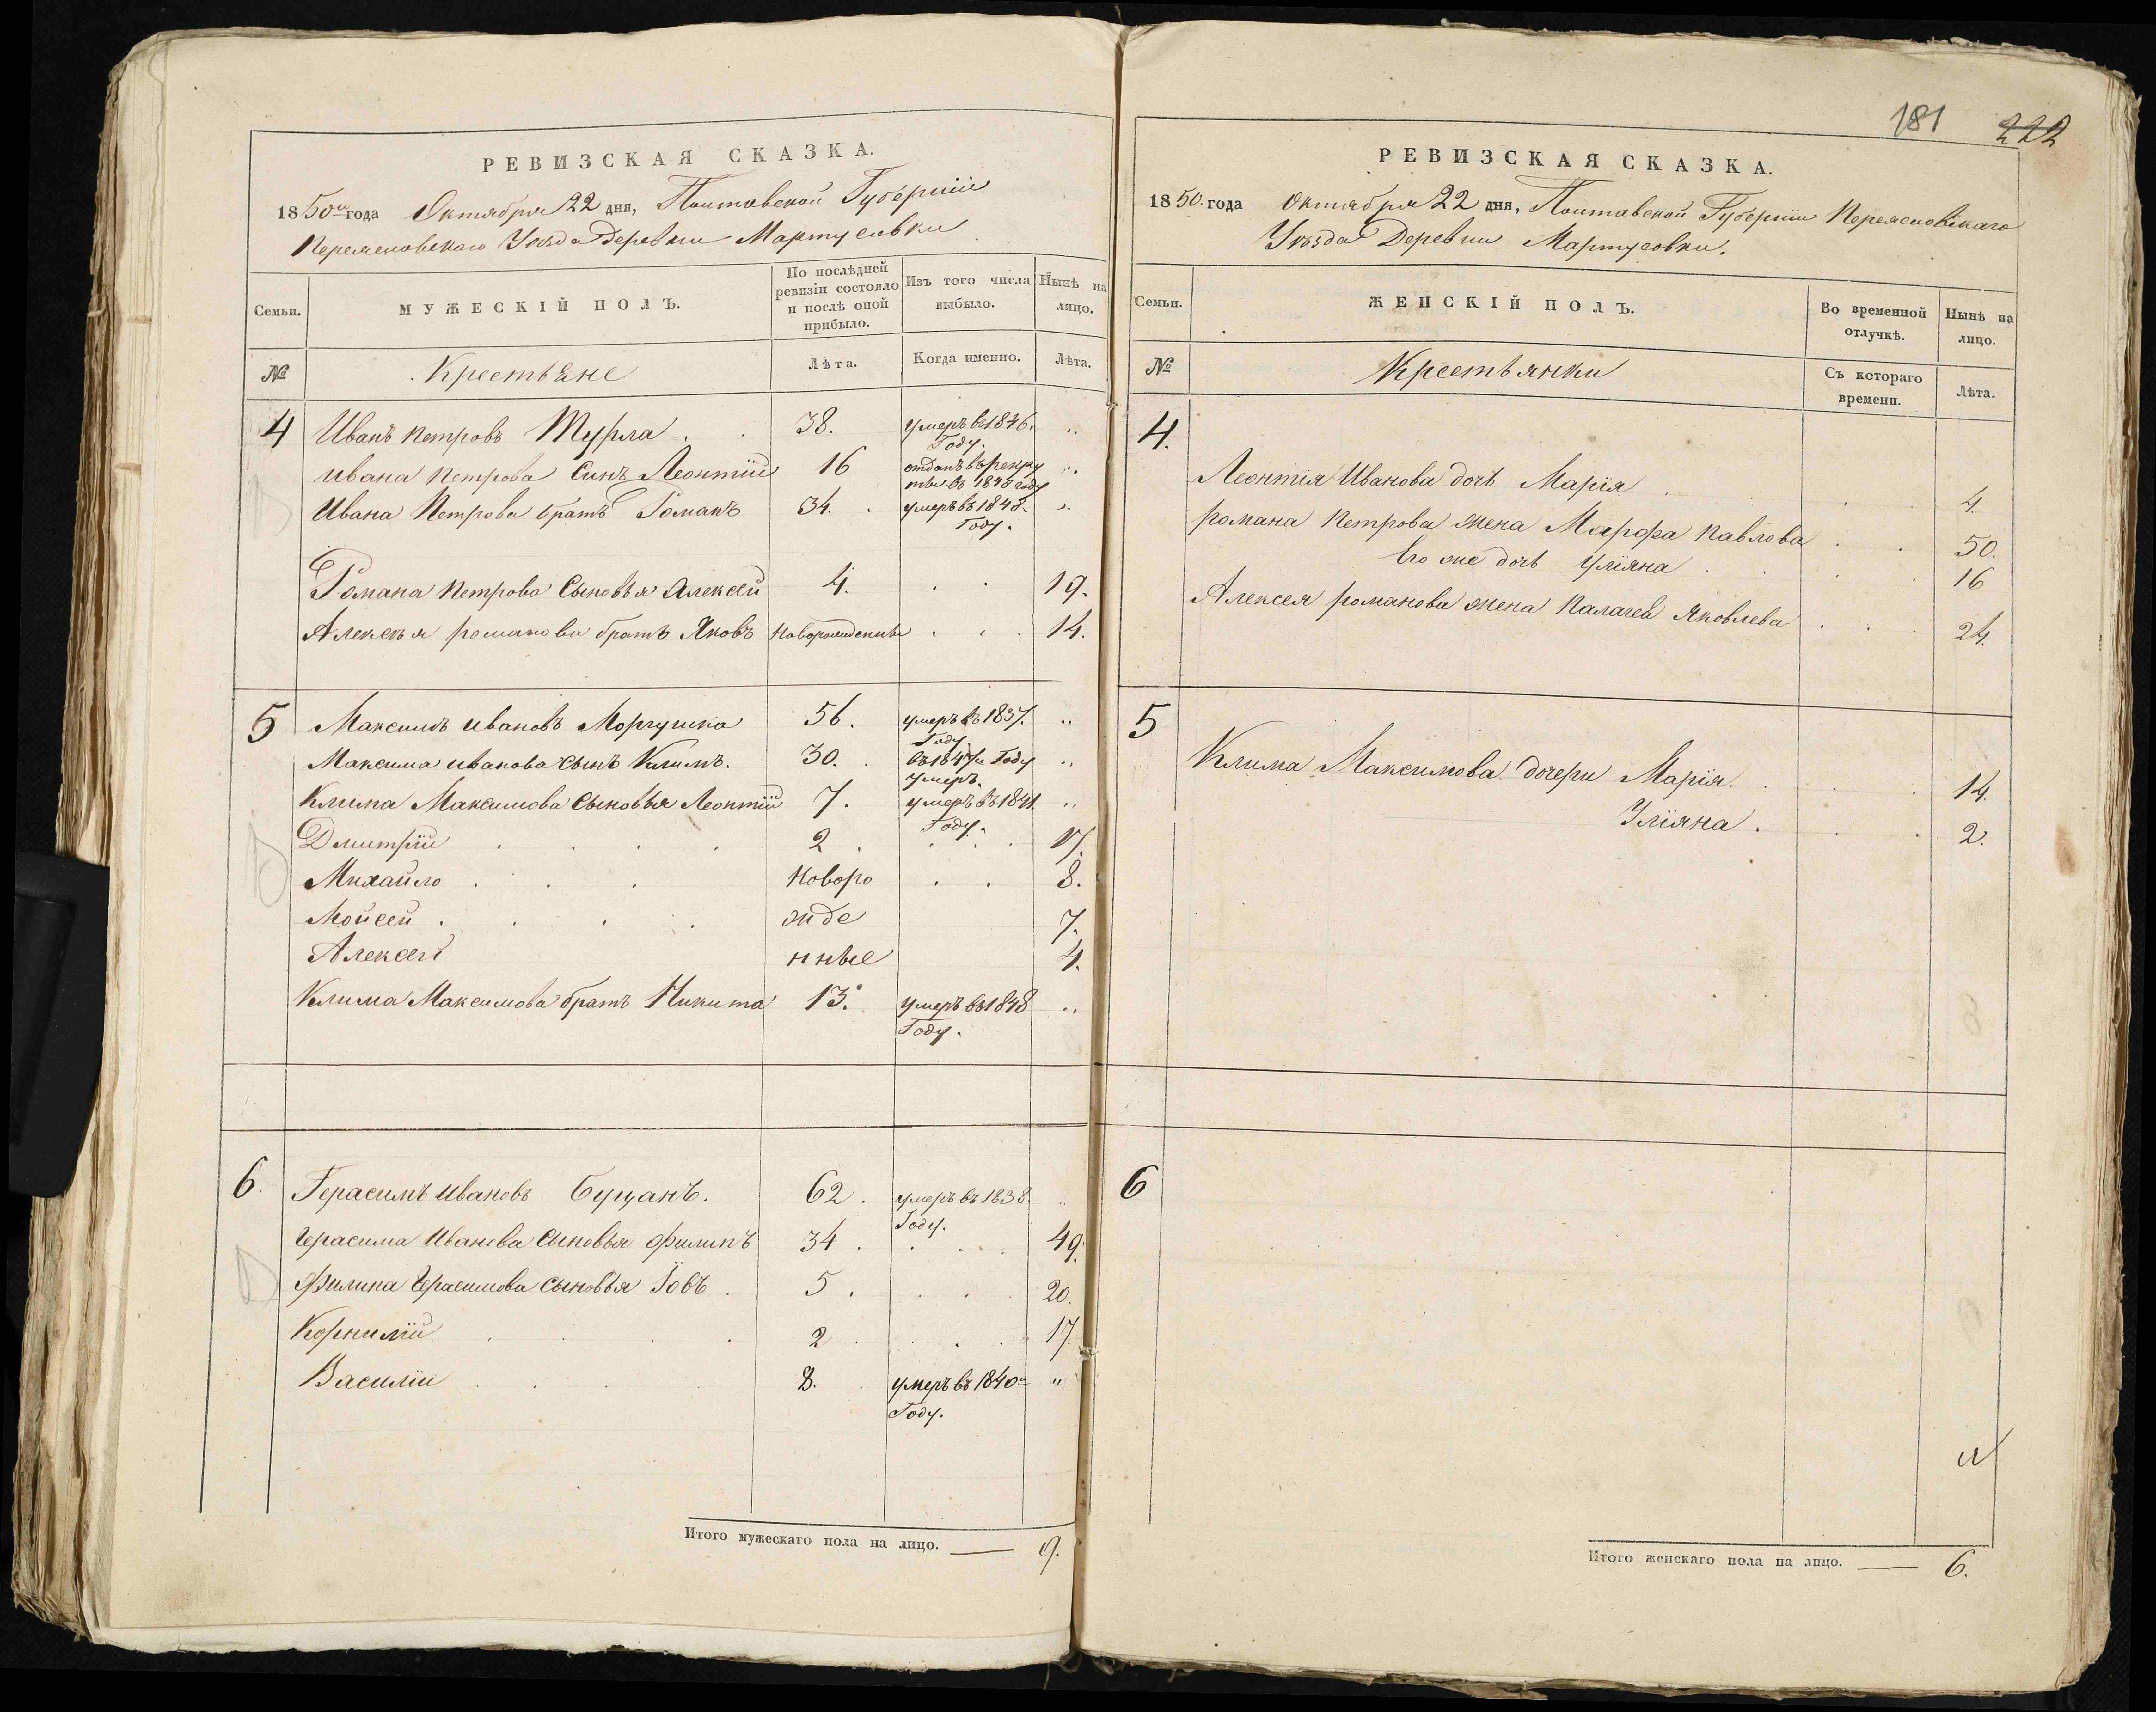 РЕВИЗСКАЯ СКАЗКА.
1850го года Октября 22 дня, Полтавской Губерніи
Переяславскаго Уѣзда Деревни Мартусовки
Семьи.
МУЖЕСКІЙ ПОЛЪ.
По послѣдней ревизіи состояло и послѣ оной прибыло.
Изъ того числа выбыло.
Нынѣ на лицо.
№
Крестьяне
Лѣта.
Когда именно.
Лѣта.
4 Иванъ Петровъ Мурла . . 38. умеръ въ 1846. Году. "
Ивана Петрова Синъ Леонтій 16 отданъ въ рекруты въ 1848 году "
Ивана Петрова братъ Романъ 34. умеръ въ 1848. Году. "
Романа Петрова Сыновья Алексѣй 4. . . 19.
Алексѣя романова братъ Яковъ новорожденны . . 14.
5 Максимъ Ивановъ Моргушка 56. умеръ въ 1837. Году "
Максима Иванова сынъ Климъ. 30. въ 1847м Году умеръ. "
Клима Максимова Сыновья Леонтій 7. умеръ въ 1841 Году. "
Дмитрій . . . . 2 . . . 17.
Михайло . . . Новоро . . 8.
Мойсей . . . . жде 7.
Алексѣй нные 4.
Клима Максимова братъ Никита 13. умеръ въ 1848 Году. "
6. Герасимъ Ивановъ Буцанъ. 62. умеръ въ 1838. Году.
Герасима Иванова Сыновья Филипъ 34. . . . 49.
Филипа Герасимова Сыновья Іовъ . 5. . . . 20.
Корнилій . . . . 2 . . . 17
Василій . . . . 8. умеръ въ 1840м Году. "
Итого мужескаго пола на лицо. — 9.
181 222
РЕВИЗСКАЯ СКАЗКА.
1850. года Октября 22 дня, Полтавской Губерніи Переясловскаго
Уѣзда Деревни Мартусовки.
Семьи.
ЖЕНСКІЙ ПОЛЪ.
Во временной отлучкѣ.
Нынѣ на лицо.
№
Крестьянки
Съ котораго времени.
Лѣта.
4.
Леонтія Иванова дочь Марія . . . 4.
романа Петрова жена Марфа Павлова . . 50.
Его же дочь Уліяна . . . 16
Алексея романова жена Палагея Яковлева . . . 24.
5
Клима Максимова дочери Марія. . . . 14.
Уліяна . . . 2.
6
Итого женскаго пола на лицо. — 6.